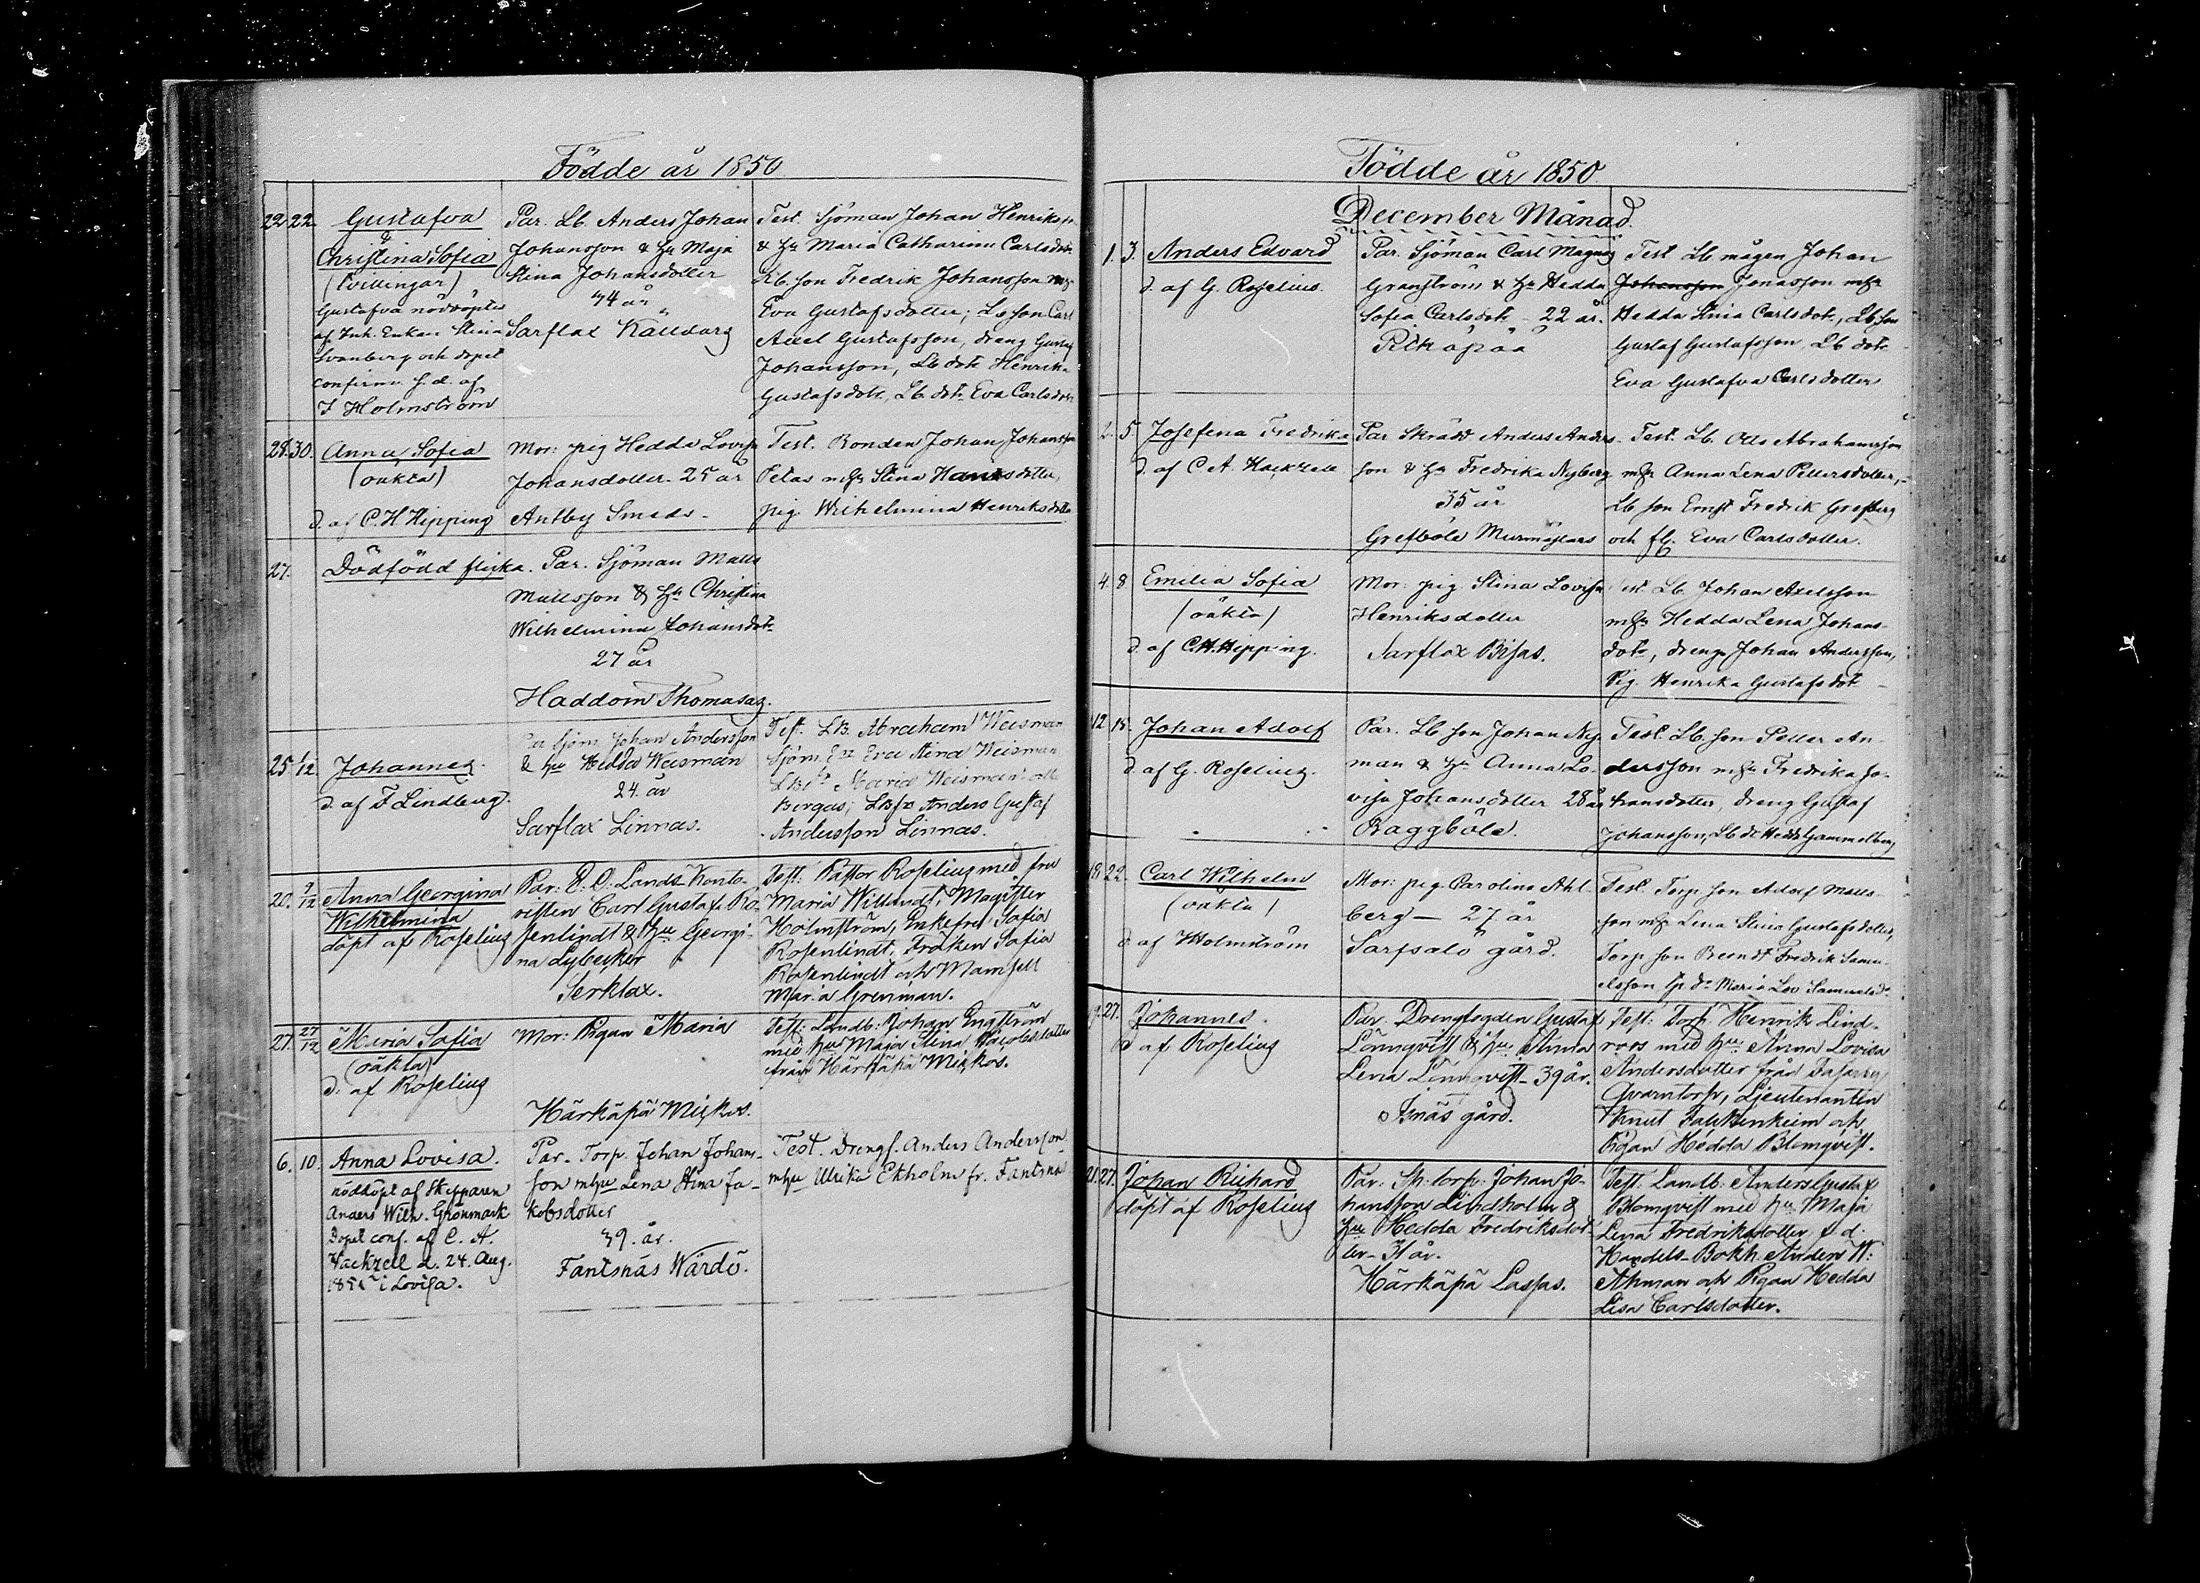 Födde år 1850.
22. 22. Gustafva
&
Christina Sofia
(tvillingar)
Gustafva nöddöpt
af Inh. Enkan Stina
Svanberg och dopet
confirm. s. d. af
I Holmström
Par. Lb. Anders Johan
Johansson & Hu Maja
Stina Johansdotter
44 år
Sarflax Källdarg
Test. Sjöman Johan Henriksson
& Hu Maria Catharina Carlsdotr
Lb. son Fredrik Johansson
Eva Gustafsdotter; Lb son Carl
Axel Gustafsson, dreng Gustaf
Johansson, Lb dotr Henrika
Gustafsdotr, Lb. dotr Eva Carlsdotr
28. 30. Anna Sofia
(oäkta)
d. af C. H Hipping
Mor: pig Hedda Lovisa
Johansdotter 25 år
Antby Smeds
Test. Bonden Johan Johansson
Petas mhu Stina Hansdotter,
pig. Wilhelmina Henriksdotter
27. Dödfödd flicka.
Par. Sjöman Matts
Mattsson & Hu Christina
Wilhelmina Johansdotr
27 år
Haddom Thomasas.
25. 1/12 Johannes.
d. af F Lindberg.
Par Sjöm. Johan Andersson
& hu Hedda Weisman
24. år
Sarflax Linnas.
Test. LB. Abraham Weisman
Sjöm. Eva Stina Weisman
Maria Weisman
Bergas; Lbs Anders Gustaf
Andersson Linnas.
20. 9/12 Anna Georgina
Wilhelmina
döpt af Roselius
Par: E. O. Lands-Konto-
risten Carl Gustaf Ro-
senlindt & hu Georgi-
na dybecker
Serklax.
Test: Pastor Roselius med fru
Maria Willandt, Magister
Holmström, Enkefru Sofia
Rosenlindt, Fröken Sofia
Rosenlindt och Mamsell
Maria Grenman.
27. 27/12 Maria Sofia
(oäkta)
d. af Roselius
Mor: Pigan Maria
Härkäpä Mickos.
Test: Landb: Johan Engström
med hu Maja Stina Jacobsdotter
från Härkäpä Mickos.
6. 10. Anna Lovisa.
nöddöpt af Skepparen
Anders Wilh. Grönmark
Dopet conf. af C. A.
Hackzell d. 24. Aug.
i Lovisa.
Par. Torp. Johan Johans-
son mhu Lena Stina Ja-
kobsdotter
39. år.
Fantsnäs Wårdö.
Test. Drengs. Anders Andersson
mhu Ulrika Ekholm fr. Fantsnäs
Födde år 1850.
December Månad.
1. 3. Anders Edvard
d. af G. Roselius.
Par. Sjöman Carl Magnus
Granström & Hu Hedda
Sofia Carlsdotr - 22 år.
Pitkäpää
Test. Lb mågen Johan
Johansson Jonasson mhu
Hedda Stina Carlsdotr, Lb son
Gustaf Gustafsson, Lb dotr
Eva Gustafva Carlsdotter
2. 5. Josefina Fredrika
d. af C. A. Hackzell
Par Skrädd Anders Anders-
son & Hu Fredrika Nyberg
35 år
Grefböle Murmästars
Test. Lb. Otts Abrahamsson
mhu Anna Lena Pettersdotter,
Lb son Ernst Fredrik Grefberg
och fl. Eva Carlsdotter.
4. 8. Emilia Sofia
(oäkta)
d. af C. H. Hipping.
Mor: pig Stina Lovisa
Henriksdotter
Sarflax Bisas.
Test. Lb. Johan Axelsson
mhu Hedda Lena Johans-
dotr, dreng Johan Andersson,
Pig. Henrika Gustafsdotr
12. 15. Johan Adolf
d. af G. Roselius.
Par. Lb son Johan Ny-
man & Hu Anna Lo-
visa Johansdotter 28 år
Baggböle.
Test. Lb. son Petter An-
dersson mhu Fredrika Jo-
hansdotter, dreng Gustaf
Johansson, Lb dr Hedda Gammelberg
19. 22. Carl Wilhelm
(oäkta)
d. af Holmström
Mor: pig Carolina Ahl-
berg - 27 år
Sarfsalö gård.
Test. Torp son Adolf Matts-
son mhu Lena Stina Gustafsdotter,
Torp son Berndt Fredrik Samu-
elsson Maria Lov Samuelsdr
27. Johannes.
d. af Roselius
Par. Drengfogden Gustaf
Lönnqvist & hu Anna
Lena Lönnqvist - 39 år.
Isnäs gård.
Test: Torp. Henrik Lind-
roos med hu Anna Lovisa
Andersdotter från Tasarry
Qvarntorp, Ljeutenanten
Knut Falckenheim och
Pigan Hedda Blomqvist.
21. 27. Johan Richard
döpt af Roselius
Par: St. torp: Johan Jo-
hansson Lindholm &
hu Hedda Fredriksdot-
ter - 31 år.
Härkäpä Lassas.
Test: Landb: Anders Gustaf
Blomqvist med hu Maja
Lena Fredriksdotter s. d.
Handels-Bokh. Anders W:
Ahman och Pigan Hedda
Lisa Carlsdotter.